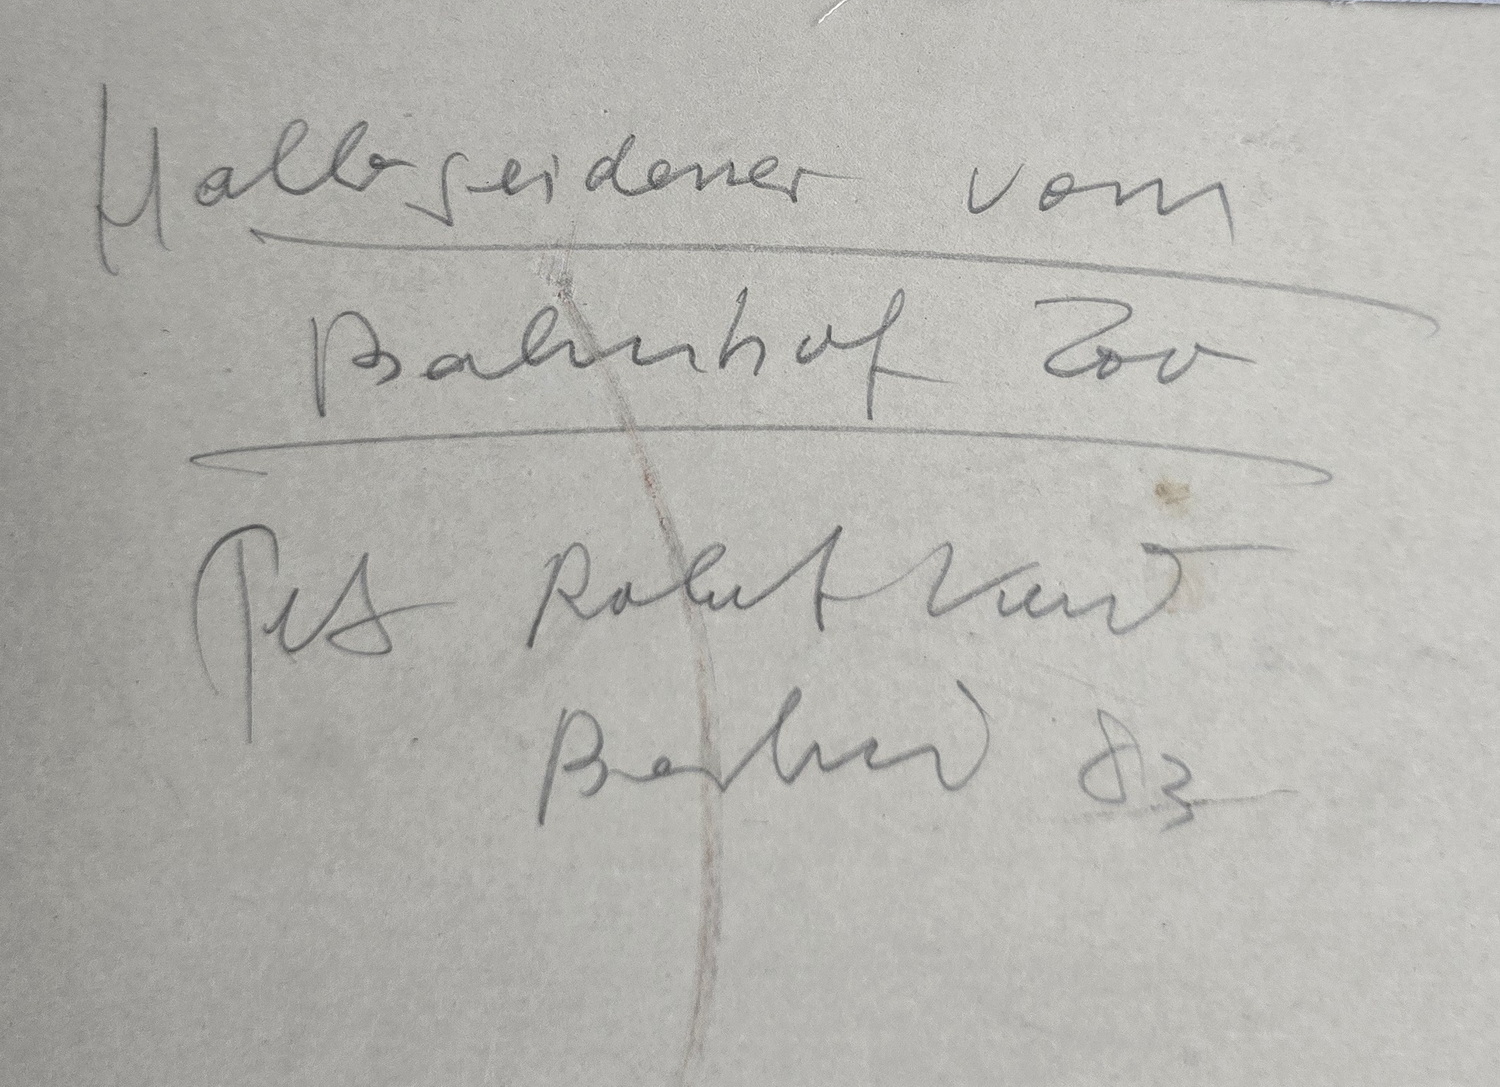 Halbseidener vom
Bahnhof Zoo
Robert
Berlin 83